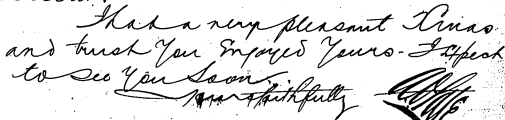 I had a very pleasant Xmas
and trust You Enjoyed Yours - I Expect
to see You Soon.
faithfully